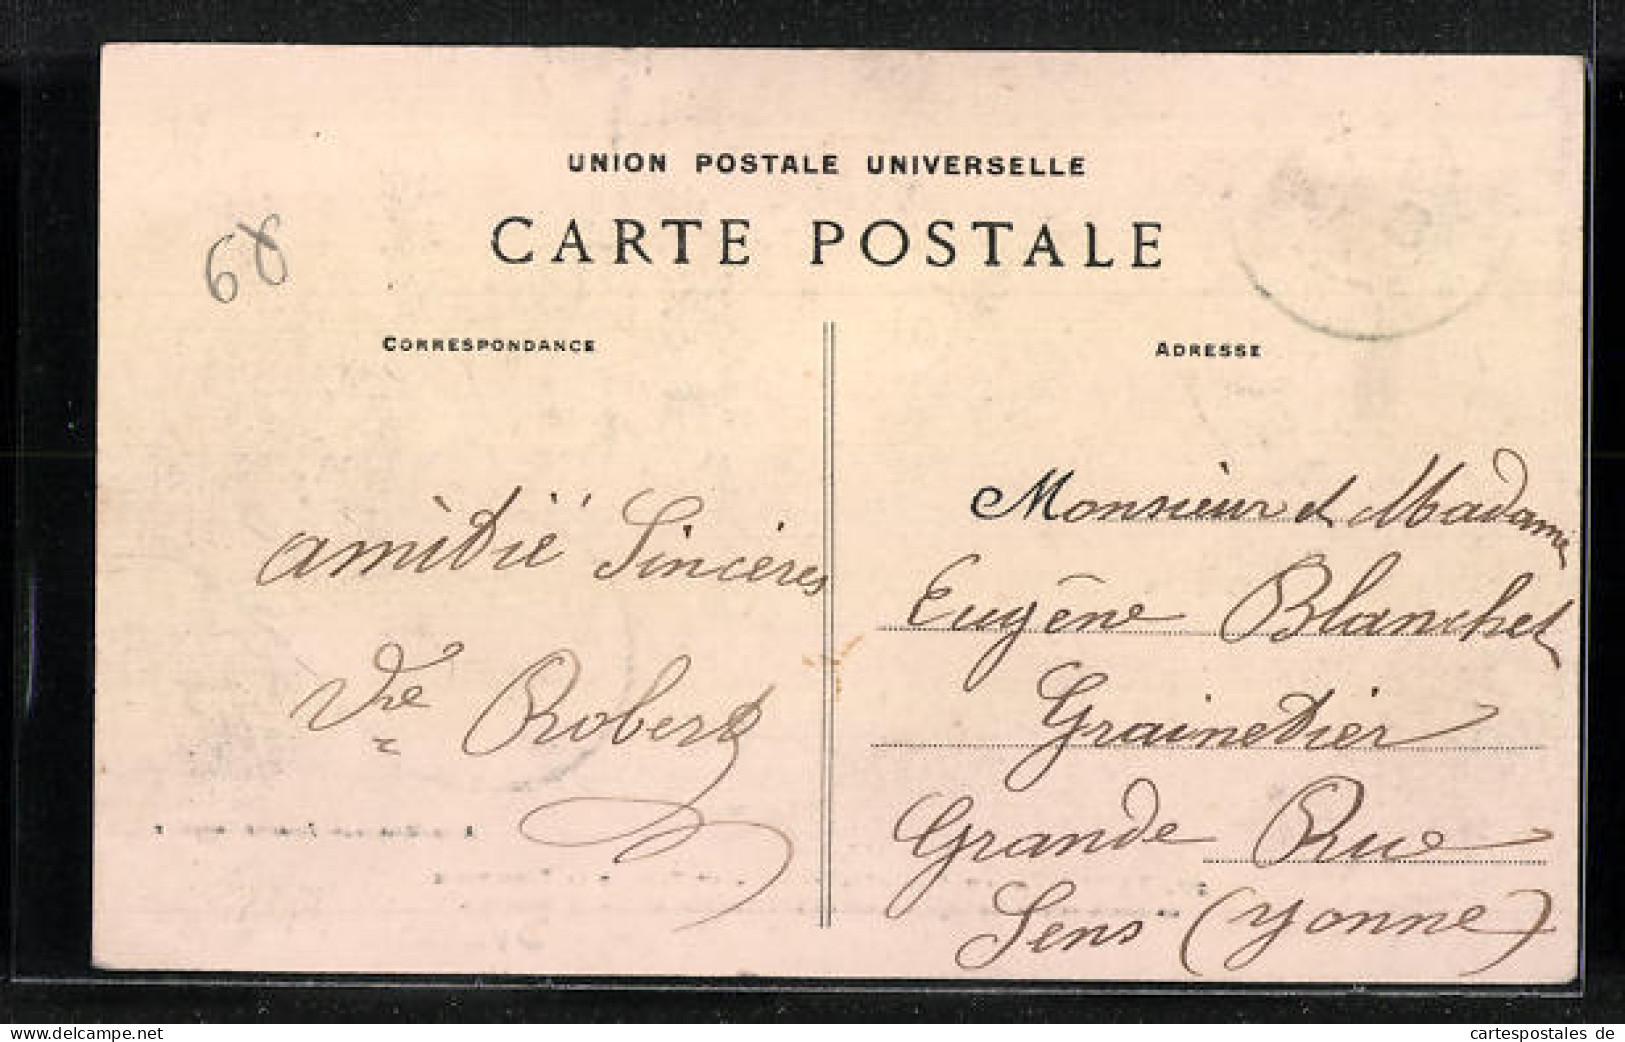 UNION POSTALE UNIVERSELLE
CARTE POSTALE
68
CORRESPONDANCE
ADRESSE
amitié Sincères
Vve Robert
Monsieur et Madame
Eugène Blanchet
Grainetier
Grande Rue
Sens (Yonne)
cartespostales de